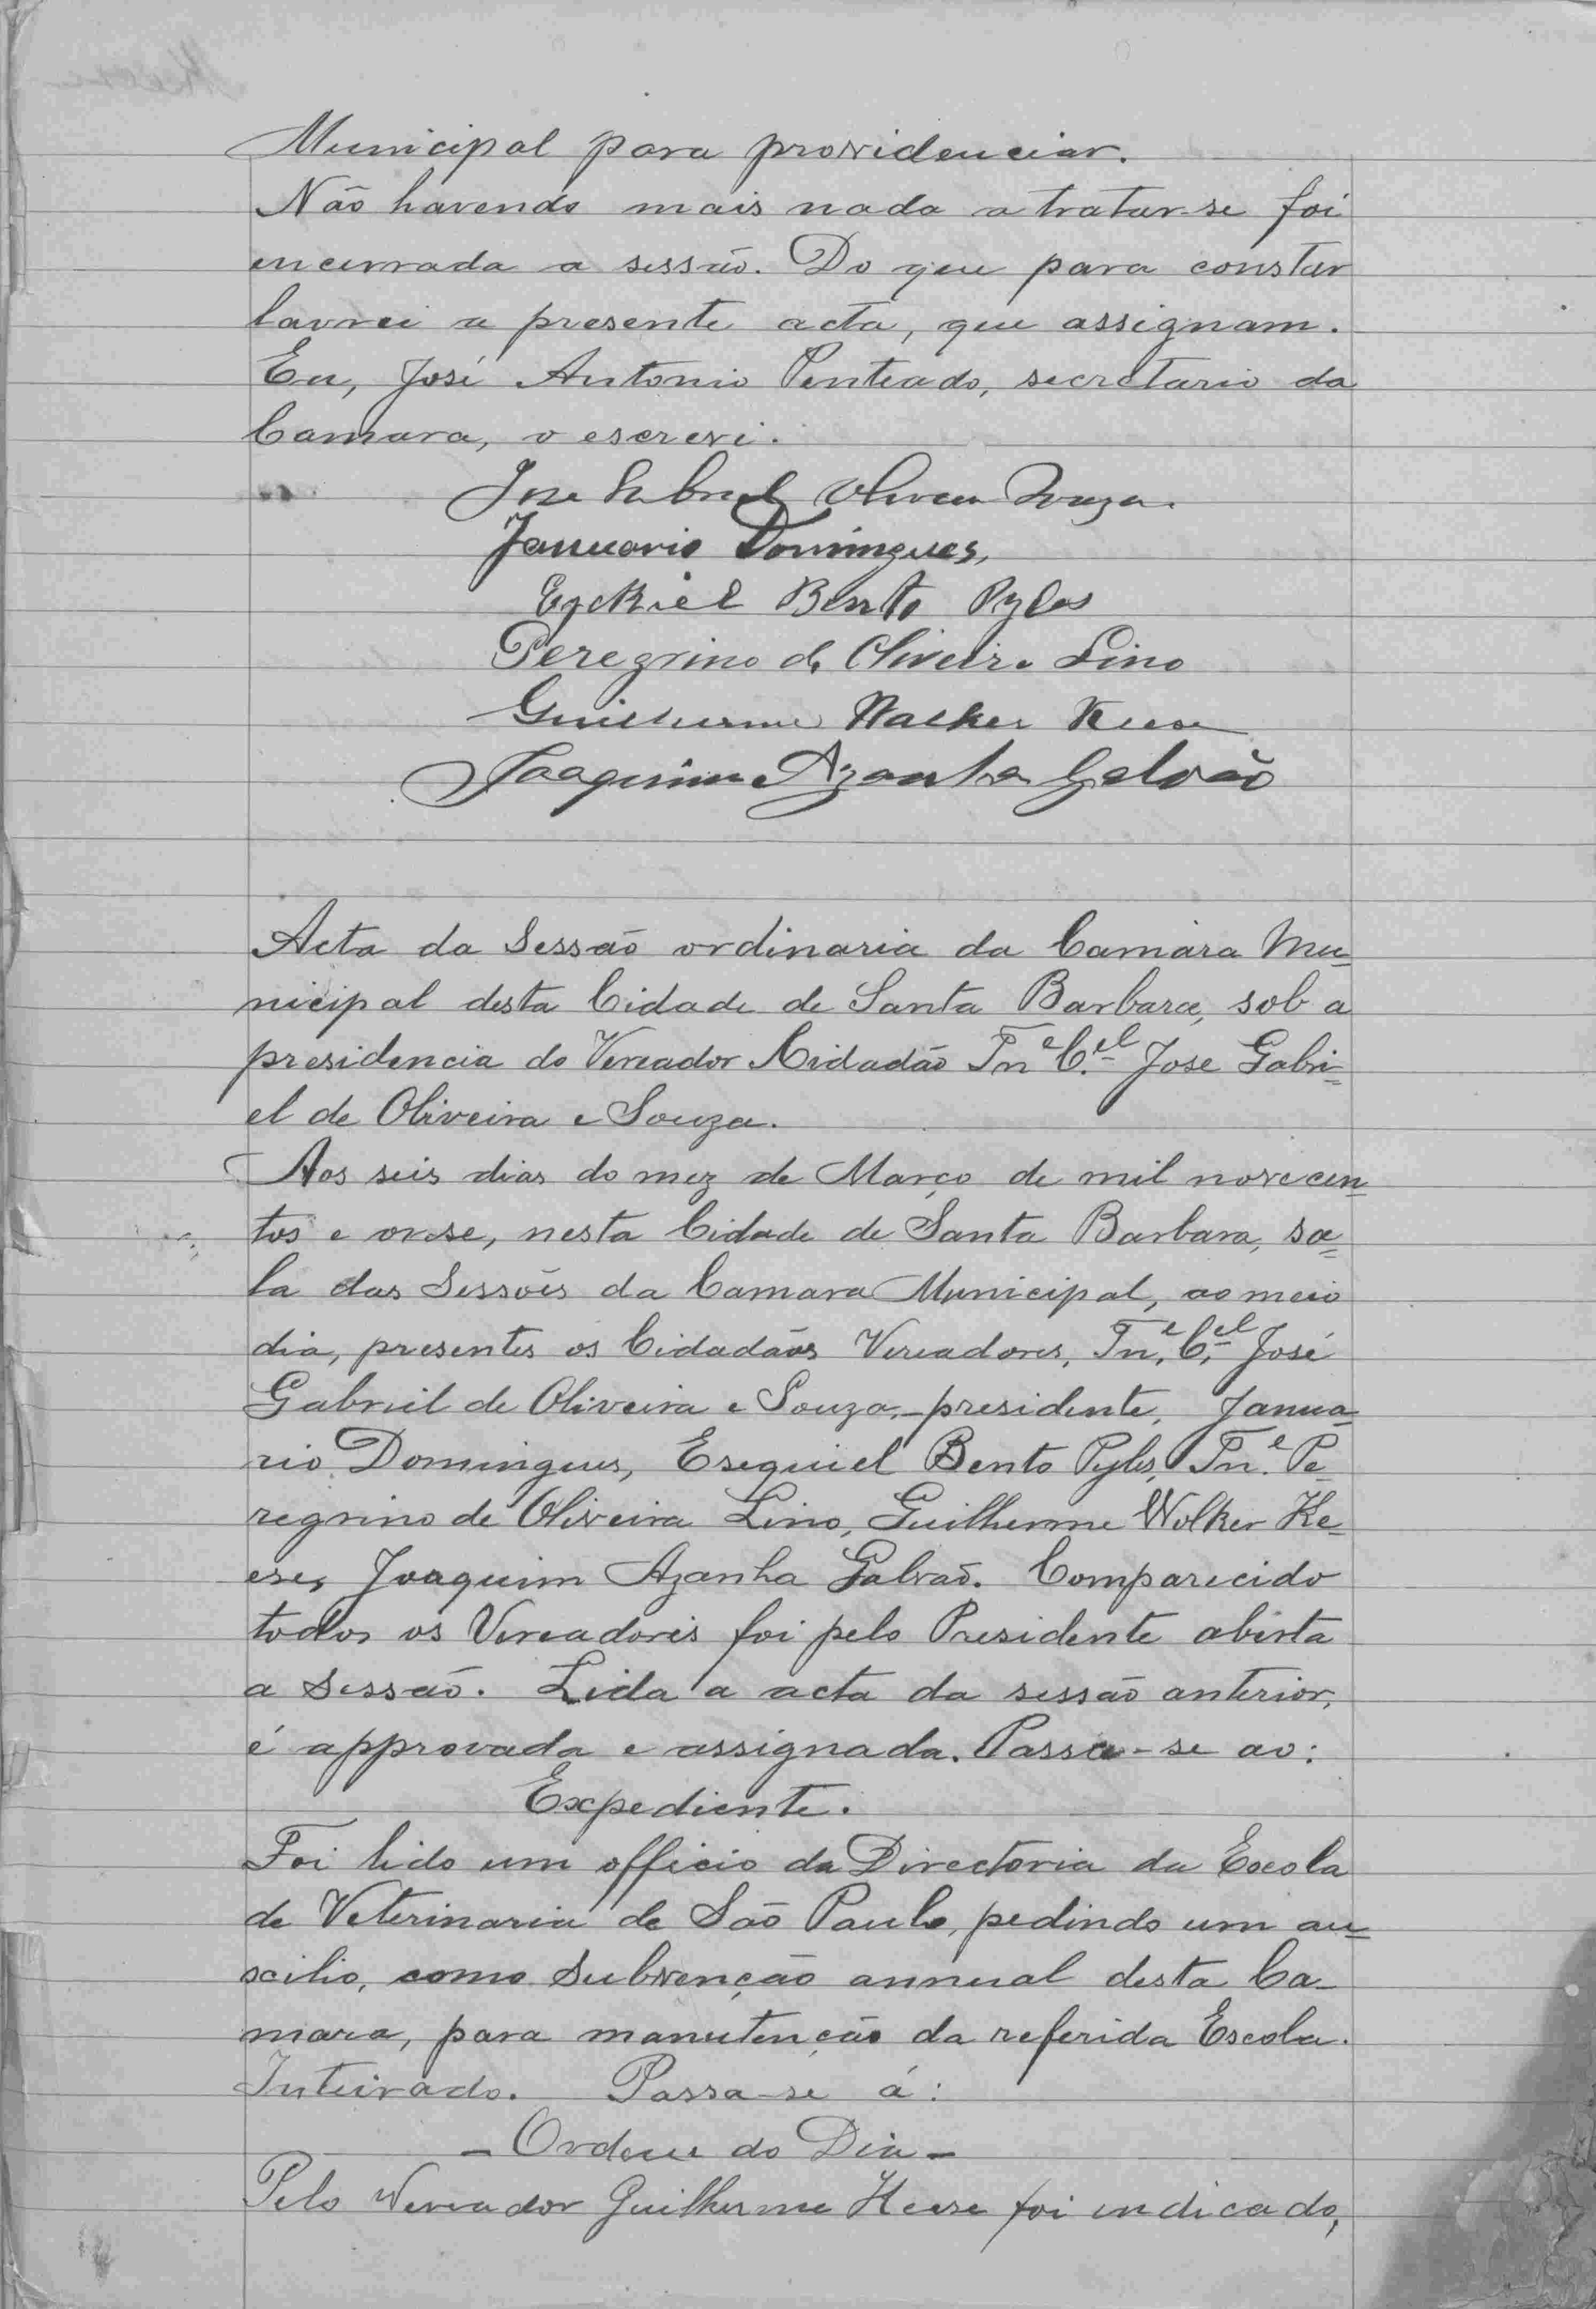 Municipal para providenciar.
Não havendo mais nada a tratar-se foi
encerrada a sessão. Do que para constar
lavrei a presente acta, que assignam.
Eu, José Antonio Penteado, secretario da
Camara, o escrevi.
Jose Gabriel Oliveira Souza.
Januario Domingues,
Ezekiel Bento Pyles
Peregrino de Oliveira Lino
Guilherme Walker Keese
Joaquim Azanha Galvão
Acta da Sessão ordinaria da Camara Mu=
nicipal desta Cidade de Santa Barbara, sob a
presidencia do Vereador Cidadão Tn.e C.el Jose Gabri=
el de Oliveira e Souza.
Aos seis dias do mez de Março de mil novecen=
tos e onse, nesta Cidade de Santa Barbara, sa=
la das Sessões da Camara Municipal, ao meio
dia, presentes os Cidadãos Vereadores, Tn.e C.el José
Gabriel de Oliveira e Souza,-presidente, Janua-
rio Domingues, Esequiel Bento Pyles, Tn.e Pe-
regrino de Oliveira Lino, Guilherme Wolker Ke-
ese, Joaquim Azanha Galvão. Comparecido
todos os Vereadores foi pelo Presidente aberta
a Sessão. Lida a acta da sessão anterior,
é approvada e assignada. Passa-se ao:
Expediente.
Foi lido um officio da Directoria da Escola
de Veterinaria de São Paulo, pedindo um au=
xcilio, como Subvenção annual desta Ca-
mara, para manutenção da referida Escola.
Inteirado. Passa-se á:
- Ordem do Dia -
Pelo Vereador Guilherme Keese foi indicado,